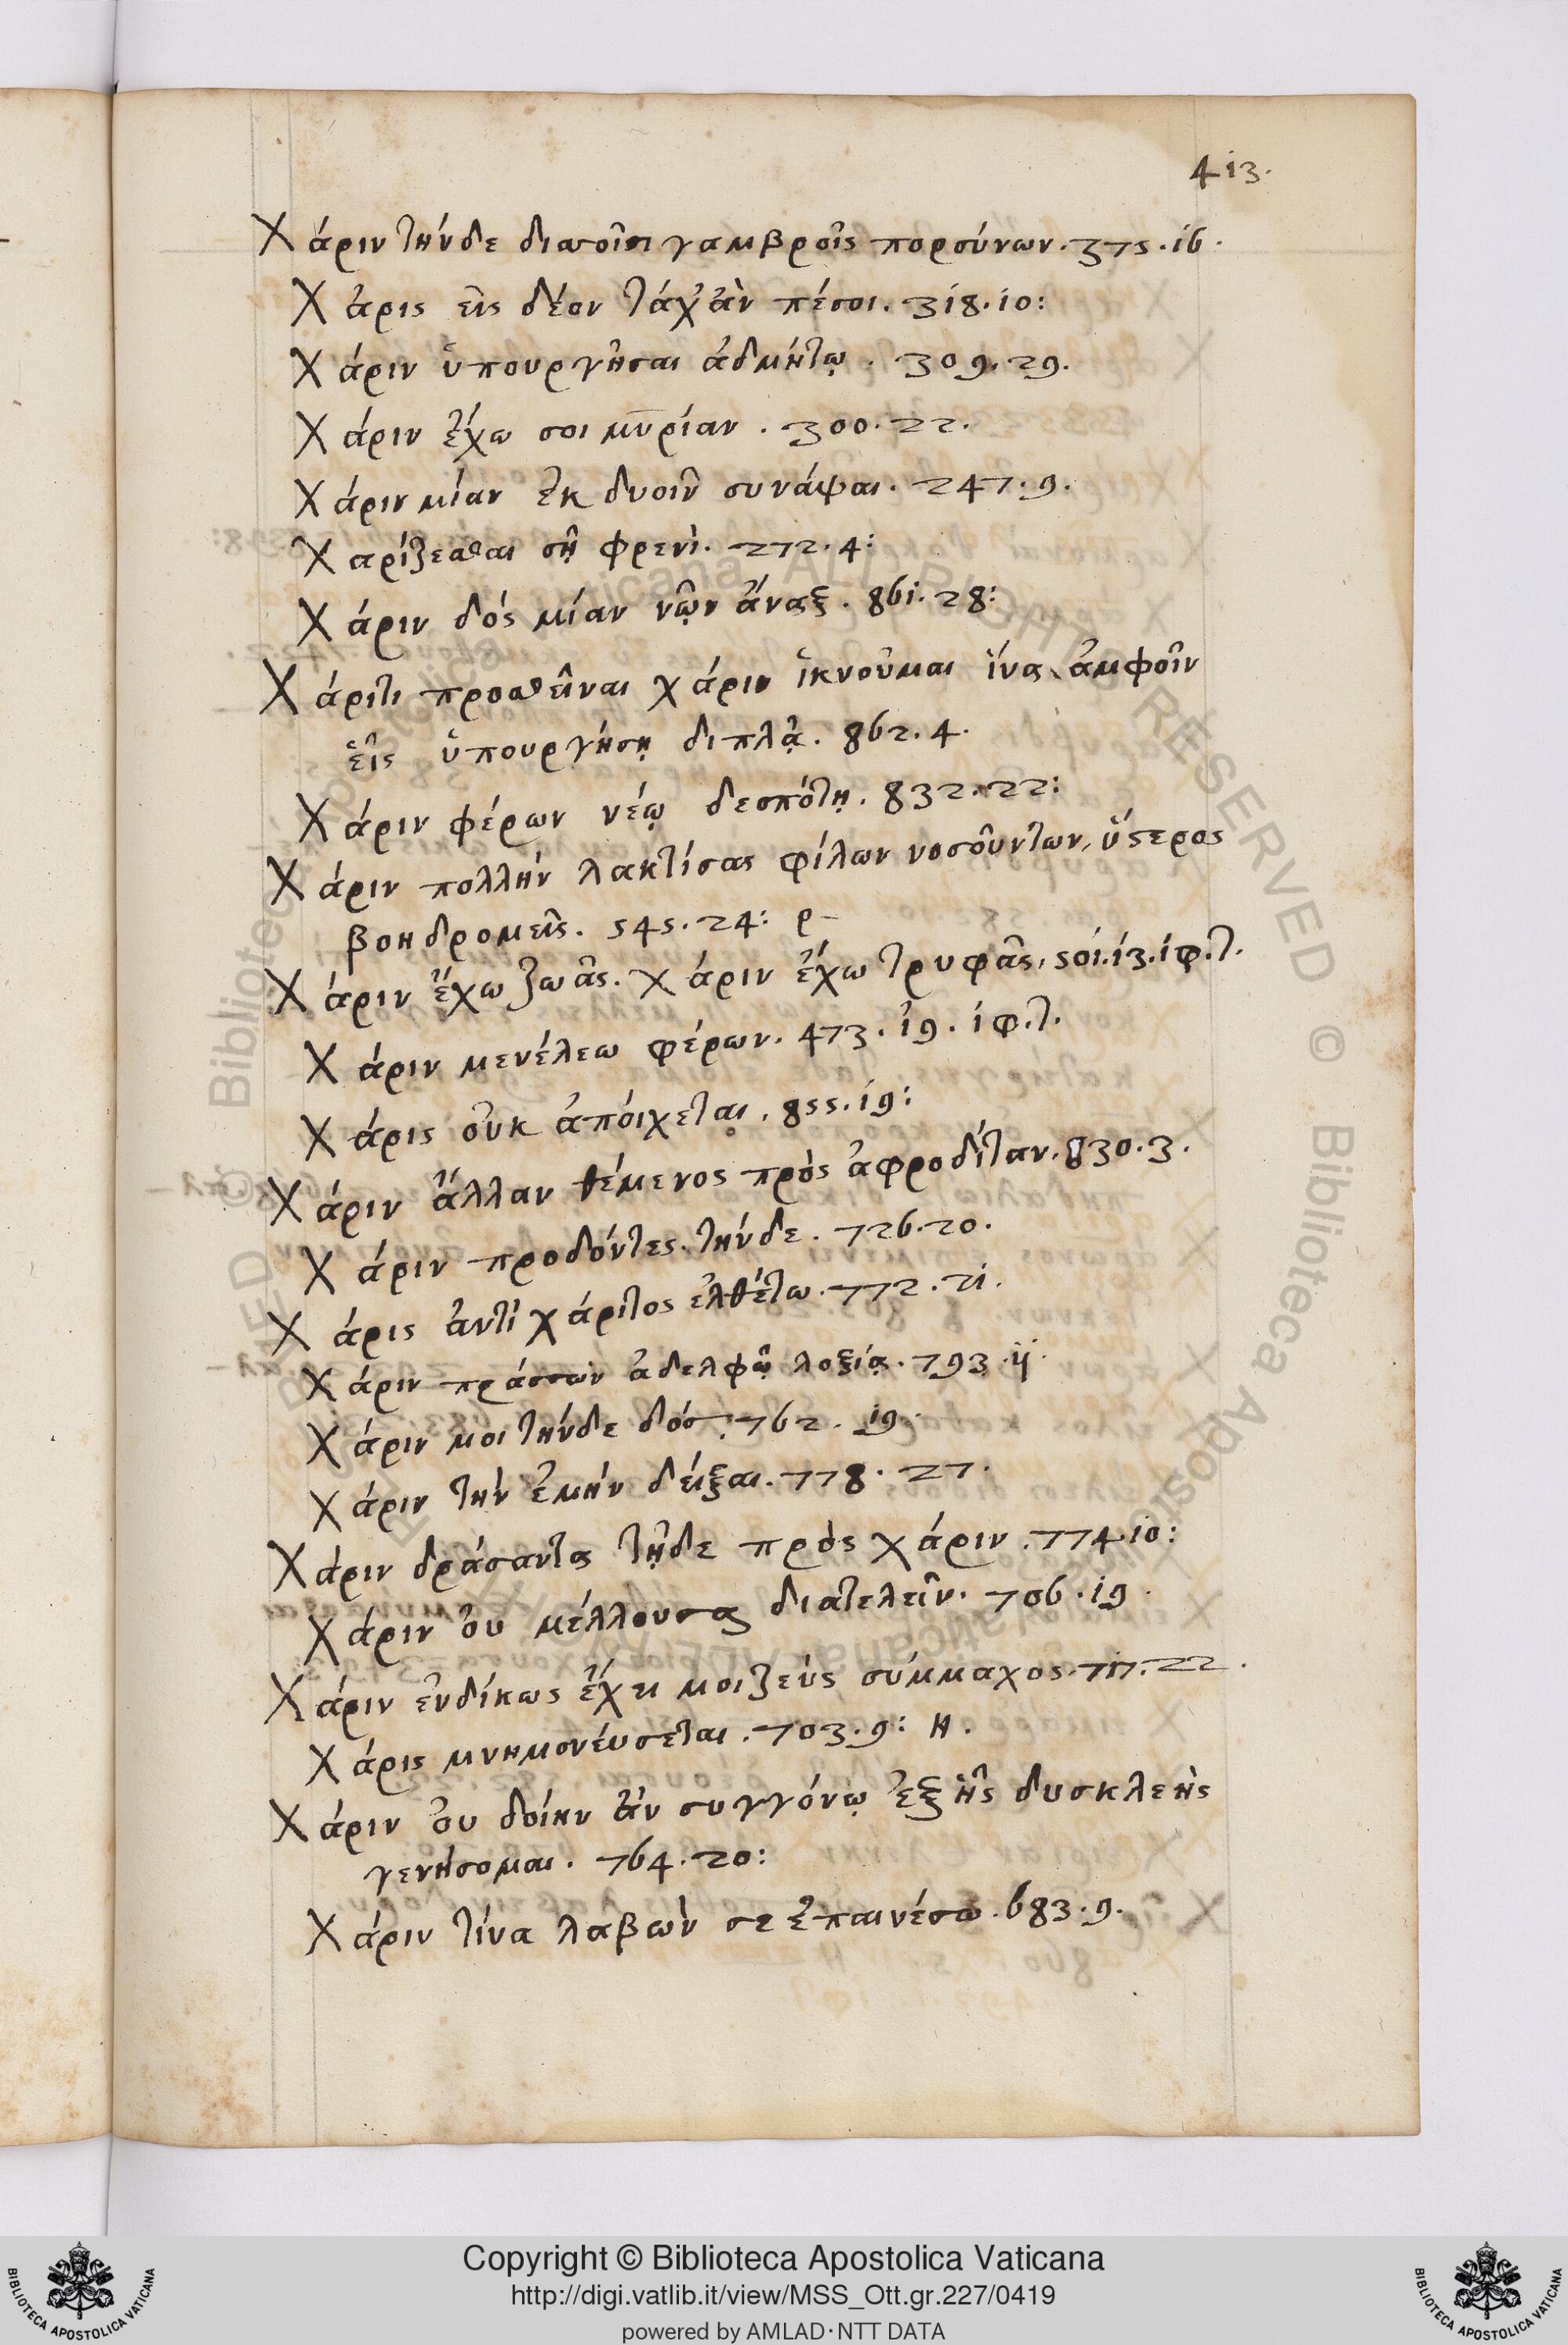 413.
Χάριν τήνδε δισσοῖσι γαμβροῖς πορσύνων. 375. 16.
Χάρις εἰς δέον τάχ' ἂν πέσοι. 318. 10:
Χάριν ὑπουργῆσαι ἀδμήτῳ. 309. 29.
Χάριν ἔχω σοι μυρίαν. 300. 22.
Χάριν μίαν ἐκ δυοῖν συνάψαι. 247. 9.
Χαρίζεσθαι σῇ φρενὶ. 272. 4:
Χάριν δός μίαν νῶν ἄναξ. 861. 28:
Χάριτι προσθεῖναι χάριν ἱκνοῦμαι ἵνα ἀμφοῖν
εἷς ὑπουργήσῃ διπλᾷ. 862. 4.
Χάριν φέρων νέῳ δεσπότῃ. 832. 22:
Χάριν πολλήν λακτίσας φίλων νοσούντων, ὕστερος
βοηδρομεῖς. 545. 24: ρ–
Χάριν ἔχω ζωᾶς. χάριν ἔχω τρυφᾶς, 501. 13. ἰφ. τ.
Χάριν μενέλεω φέρων. 473. 19. ἰφ. τ.
Χάρις οὐκ ἀπόιχεται. 855. 19:
Χάριν ἄλλαν θέμενος πρὸς ἀφροδίταν. 830. 3.
Χάριν προδόντες τήνδε. 726. 20.
Χάρις ἀντὶ χάριτος ἐλθέτω. 772. 21.
Χάριν πράσσων ἀδελφῷ λοξίᾳ. 793. 11.
Χάριν μοι τήνδε δός. 762. 19.
Χάριν τήν ἐμήν δεῖξαι. 778. 27.
Χάριν δράσαντα τῇδε πρὸς χάριν. 774 10:
Χάριν οὐ μέλλουσα διατελεῖν. 706. 19.
Χάριν ἐνδίκως ἔχει μοι ζεὺς σύμμαχος. 717. 22.
Χάρις μνημονέυσεται. 703. 9: Η.
Χάριν οὐ δοίην ἂν συγγόνῳ ἐξ ἧς δυσκλεὴς
γενήσομαι. 764. 20:
Χάριν τίνα λαβὼν σε ἐπαινέσω. 683. 9.
Copyright © Biblioteca Apostolica Vaticana
http://digi.vatlib.it/view/MSS_Ott.gr.227/0419
powered by AMLAD·NTT DATA